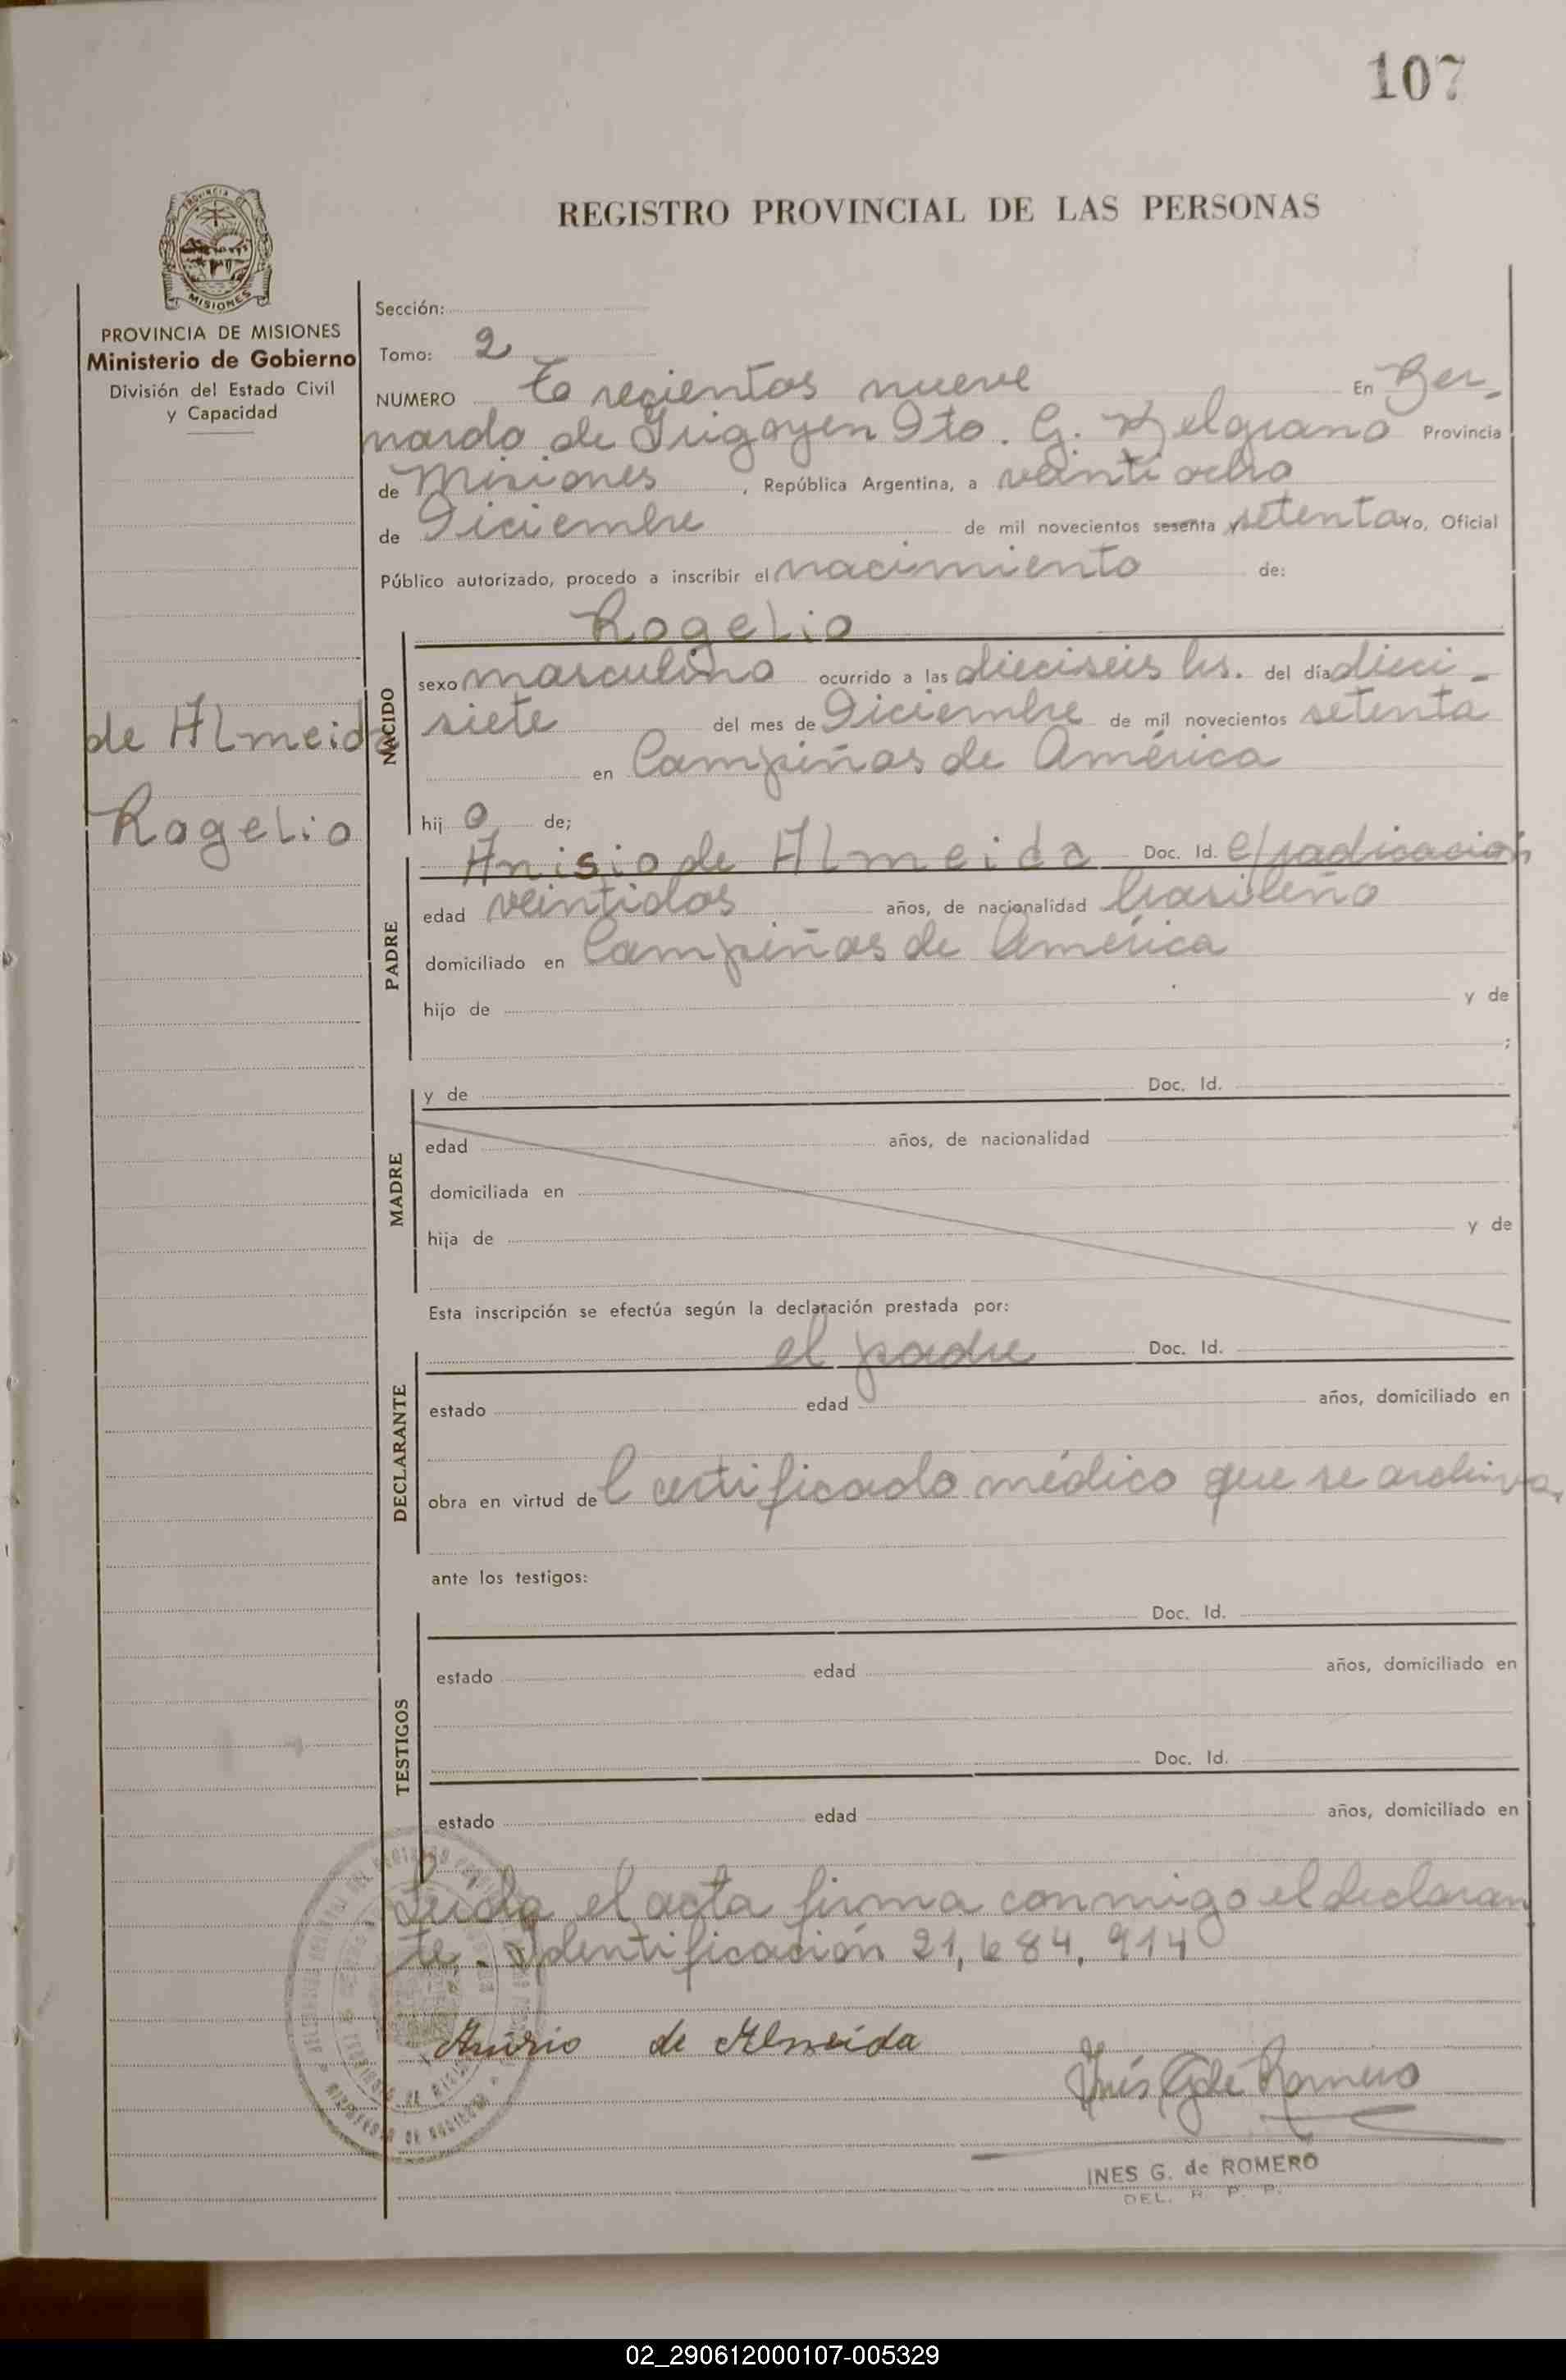 107
REGISTRO PROVINCIAL DE LAS PERSONAS
PROVINCIA DE MISIONES
Ministerio de Gobierno
División del Estado Civil
y Capacidad
de Almeida
Rogelio
Sección:
Tomo: 2
NUMERO Trecientos nueve En Ber-
nardo de Irigoyen Dto. G. Belgrano Provincia
de Misiones, República Argentina, a veintiocho
de Diciembre de mil novecientos sesenta y setenta Yo, Oficial
Público autorizado, procedo a inscribir el nacimiento de:
Rogelio
NACIDO
sexo masculino ocurrido a las dieciseis hs. del día dieci-
siete del mes de Diciembre de mil novecientos setenta
en Campiñas de América
hijo de;
PADRE
Anisio de Almeida Doc. Id. e/radicación
edad veintidos años, de nacionalidad brasileño
domiciliado en Campiñas de América
hijo de y de
;
MADRE
y de Doc. Id.
edad años, de nacionalidad
domiciliada en
hija de y de
Esta inscripción se efectúa según la declaración prestada por:
DECLARANTE
el padre Doc. Id.
estado edad años, domiciliado en
obra en virtud del certificado médico que se archiva.
ante los testigos:
TESTIGOS
Doc. Id.
estado edad años, domiciliado en
Doc. Id.
estado edad años, domiciliado en
Leida el acta firma conmigo el declaran
te. Identificación 21,684,914
Anisio de Almeida
Inés G de Romero
INES G. de ROMERO
DEL. R. P. P.
02_290612000107-005329